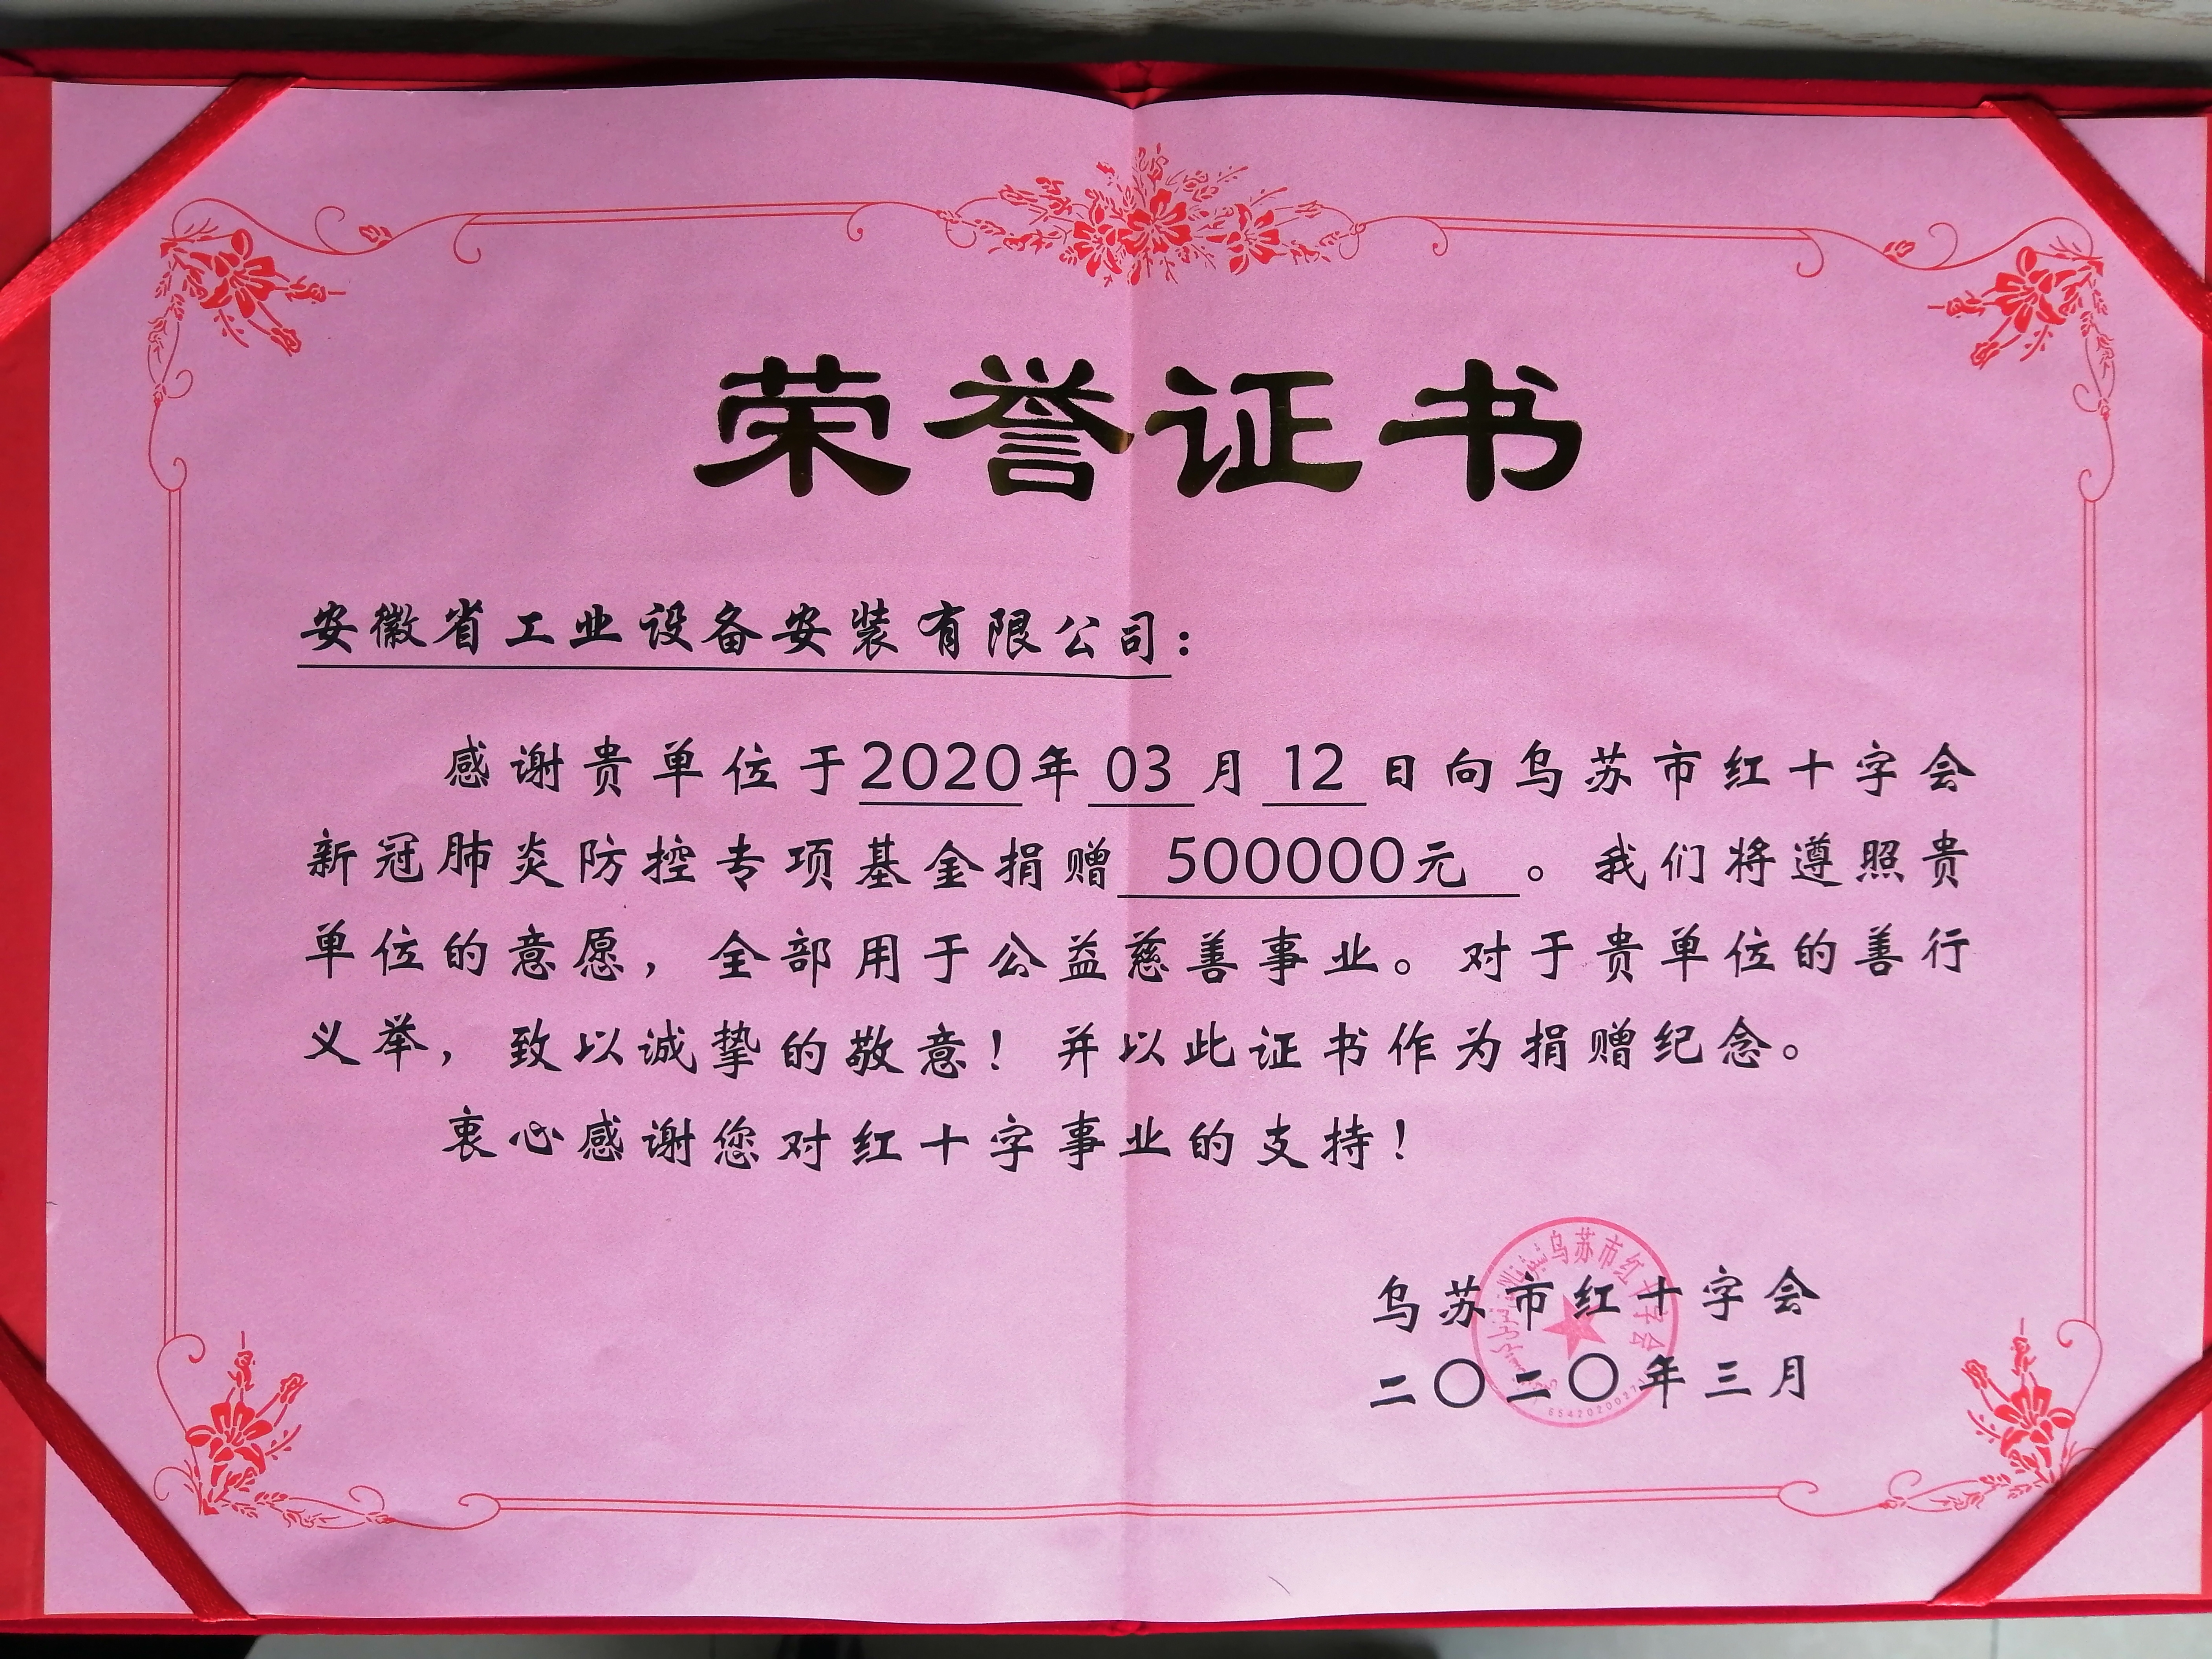 荣誉证书
安徽省工业设备安装有限公司：
感谢贵单位于2020年 03 月 12 日向乌苏市红十字会
新冠肺炎防控专项基金捐赠 500000元 。我们将遵照贵
单位的意愿，全部用于公益慈善事业。对于贵单位的善行
义举，致以诚挚的敬意！并以此证书作为捐赠纪念。
衷心感谢您对红十字事业的支持！
乌苏市红十字会
乌苏市红十字会
二〇二〇年三月